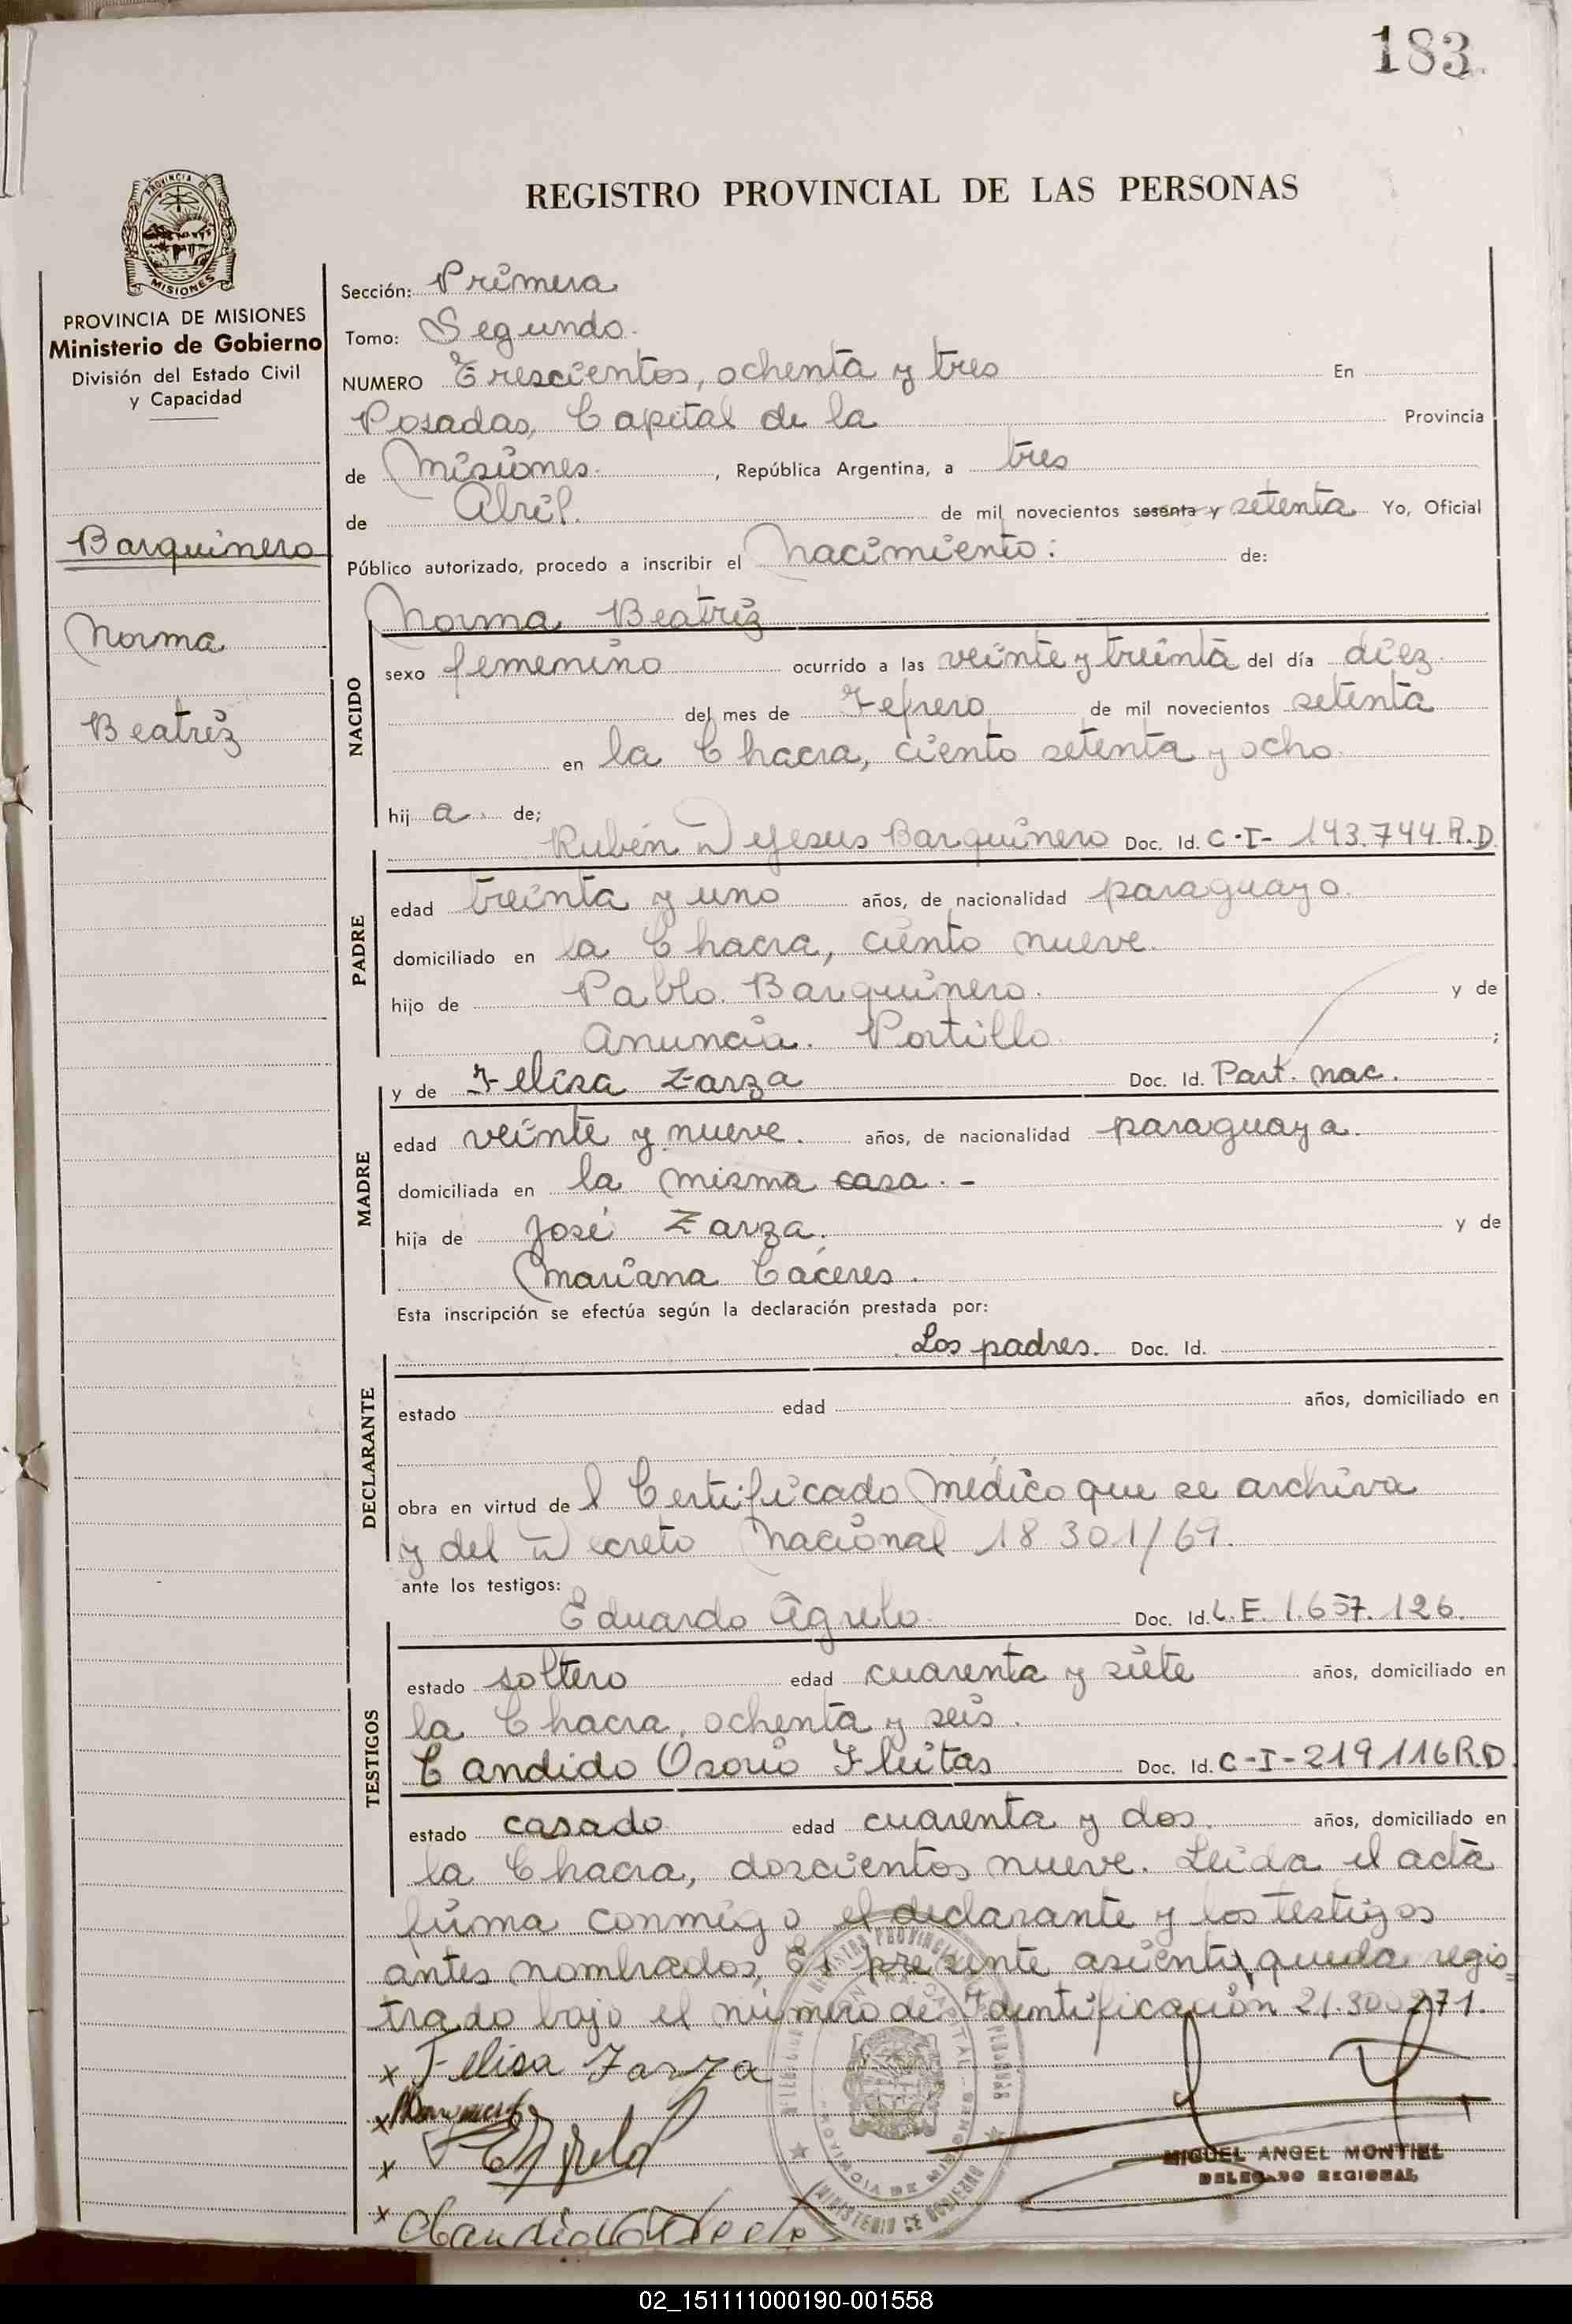 183
PROVINCIA DE
MISIONES
PROVINCIA DE MISIONES
Ministerio de Gobierno
División del Estado Civil
y Capacidad
Barquinero
Norma
Beatriz
REGISTRO PROVINCIAL DE LAS PERSONAS
Sección: Primera
Tomo: Segundo.
NUMERO Trescientos, ochenta y tres En
Posadas, Capital de la Provincia
de Misiones. , República Argentina, a tres
de Abril. de mil novecientos sesenta y setenta Yo, Oficial
Público autorizado, procedo a inscribir el Nacimiento: de:
Norma Beatriz
NACIDO
sexo femenino ocurrido a las veinte y treinta del día diez.
del mes de Febrero de mil novecientos setenta
en la Chacra, ciento setenta y ocho.
hij a. de;
Rubén D Jesus Barquinero Doc. Id. C-I- 143.744.R.D.
PADRE
edad treinta y uno años, de nacionalidad paraguayo.
domiciliado en la Chacra, ciento nueve.
hijo de Pablo. Barquinero. y de
Anuncia. Portillo ;
y de Felisa Zarza Doc. Id. Part. nac.
MADRE
edad veinte y nueve. años, de nacionalidad paraguaya.
domiciliada en la misma casa. -
hija de José Zarza. y de
Mariana Cáceres.
Esta inscripción se efectúa según la declaración prestada por:
Los padres. Doc. Id.
DECLARANTE
estado edad años, domiciliado en
obra en virtud de l Certificado Médico que se archiva
y del Decreto Nacional 18 301/69.
ante los testigos:
Eduardo Agrelo Doc. Id. L.E. 1.657.126.
TESTIGOS
estado soltero edad cuarenta y siete años, domiciliado en
la Chacra, ochenta y seis.
Candido Osorio Fleitas Doc. Id. C-I-219116R.D.
estado casado edad cuarenta y dos. años, domiciliado en
la Chacra, doscientos nueve. Leida el acta
firma conmigo el declarante y los testigos
antes nombrados, El presente asiento, queda regis=
trado bajo el número de Identificación 21.300271.
x Felisa Zarza
x
x
x
MIGUEL ANGEL MONTIEL
DELEGADO REGIONAL
MINISTERIO DE GOBIERNO
02_151111000190-001558